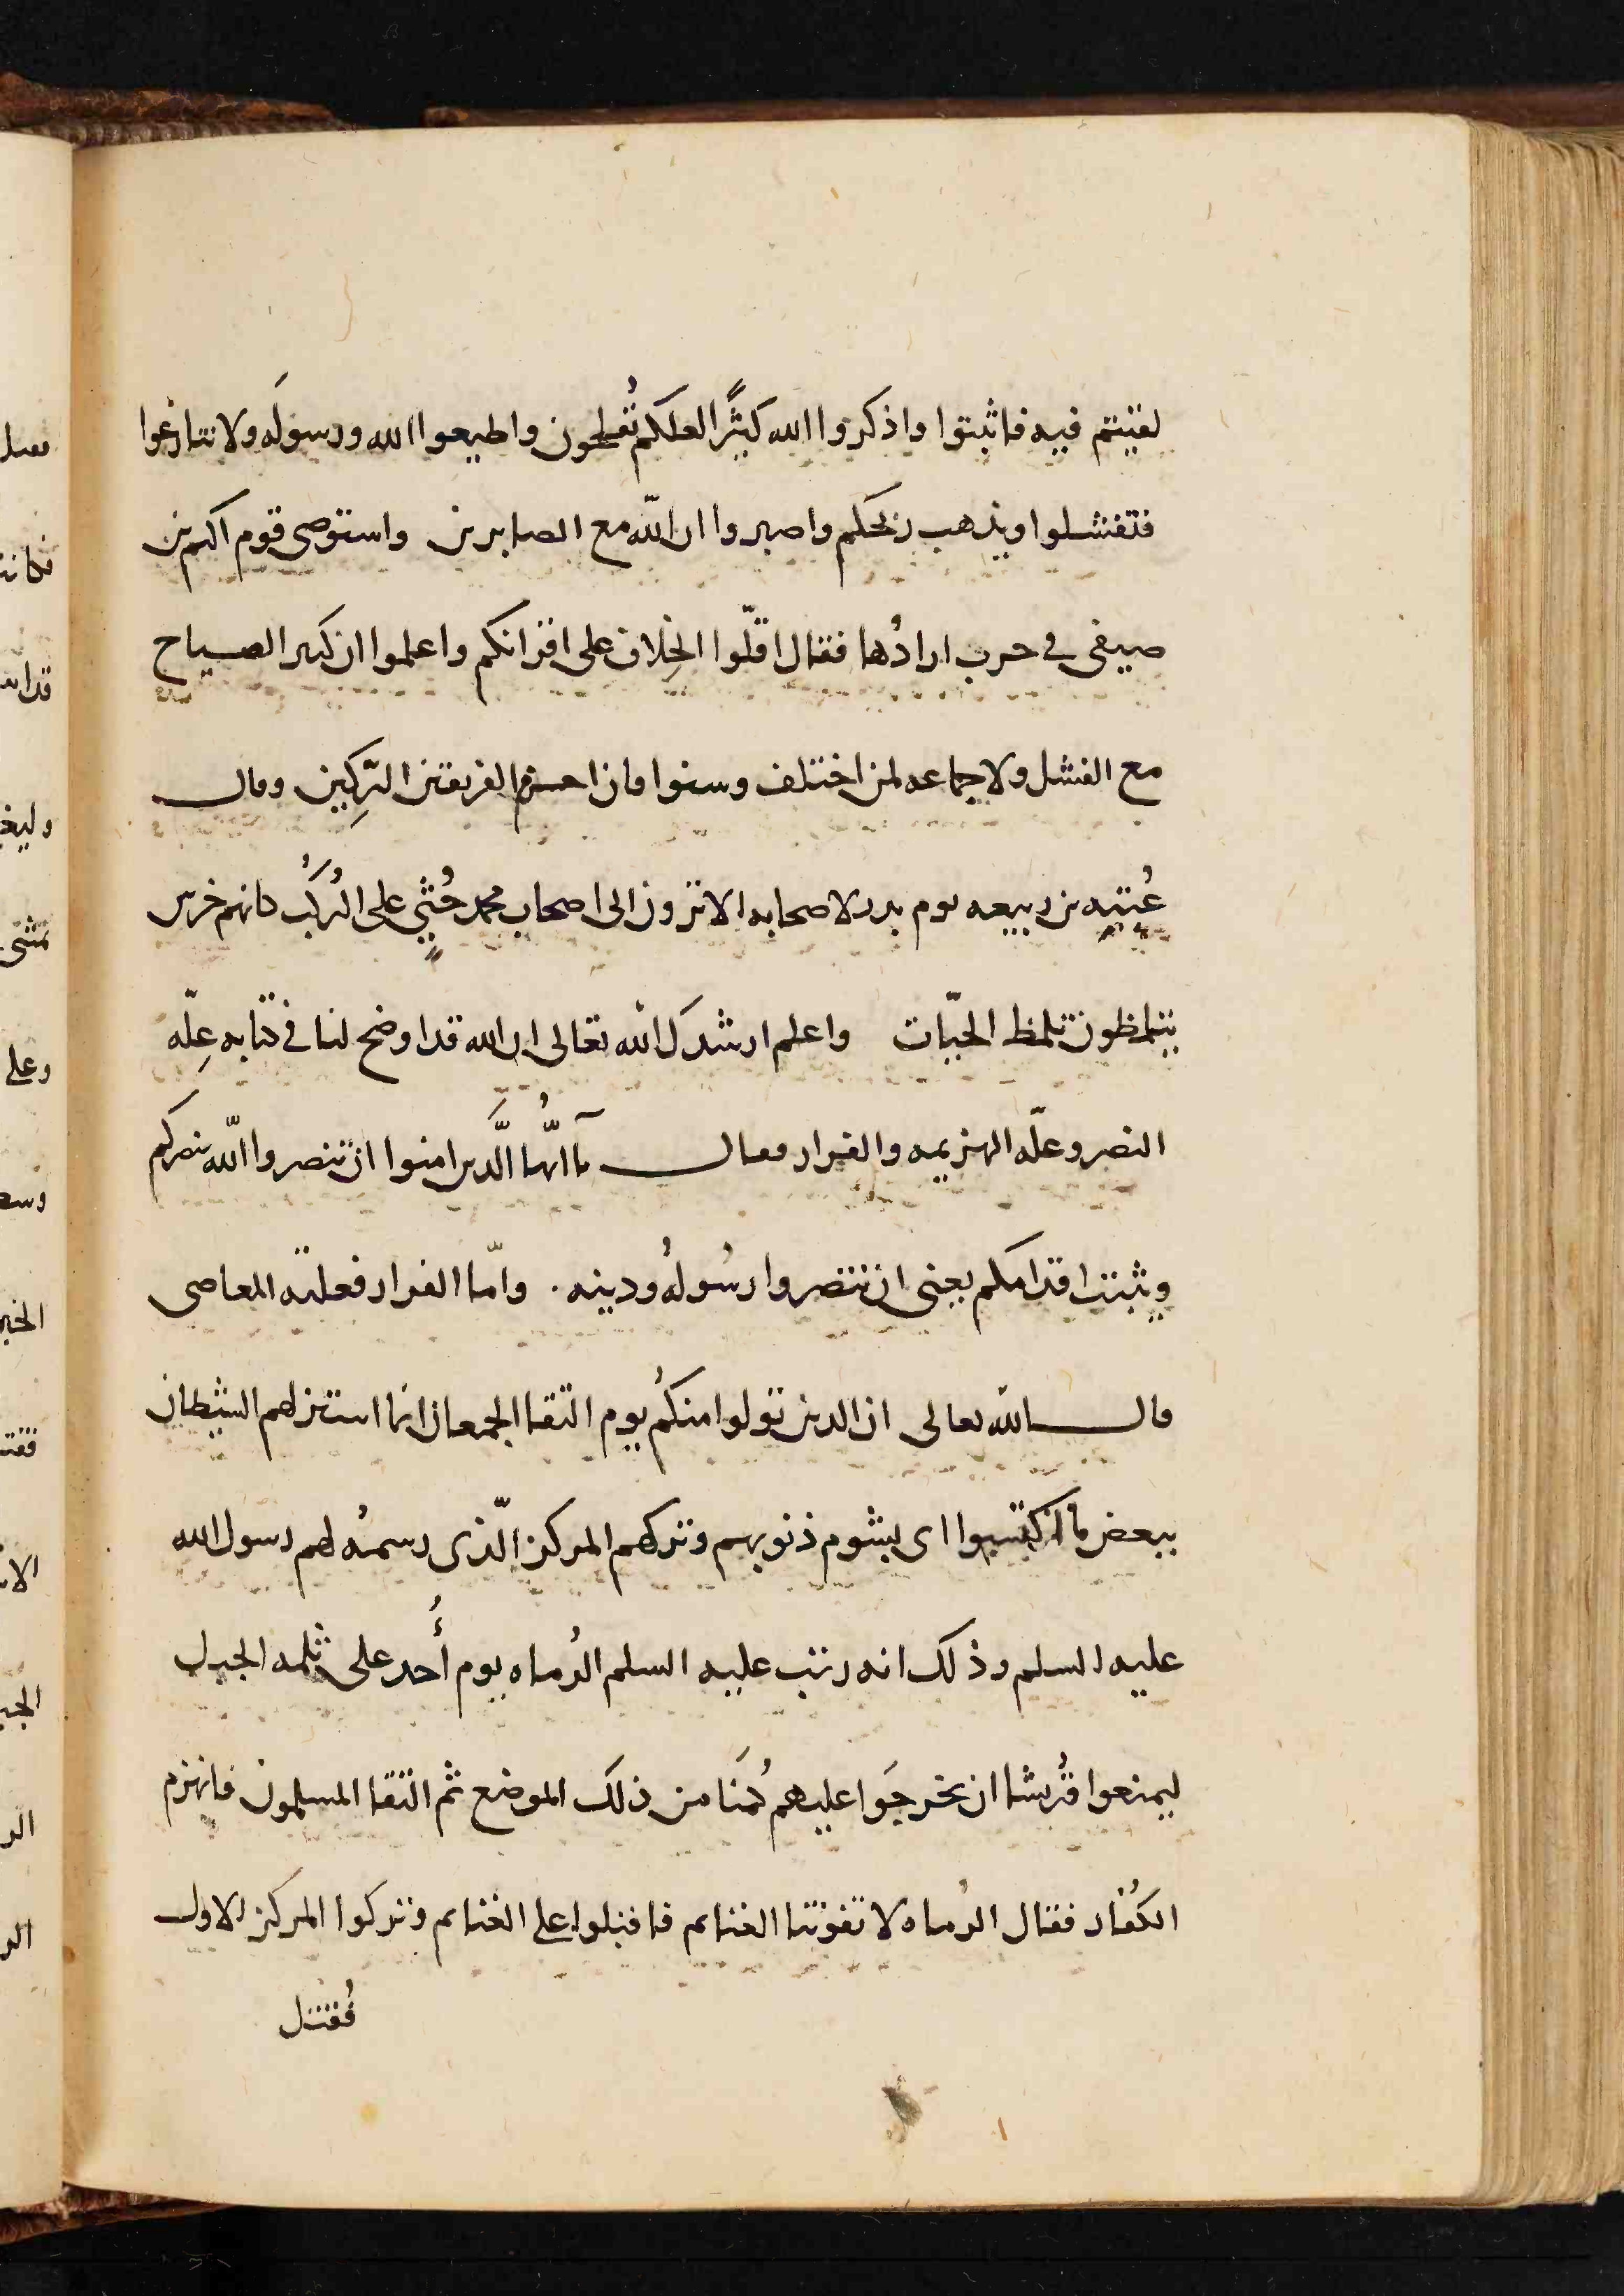 لقيتم فيه فاثبتوا واذكروا الله كثيرًا لعلكم تُفلحون واطيعوا الله ورسولَه ولا تنازعوا
فتفشلوا ويذهب ريحكم واصبروا ان اللّه مع الصابرين واستوصى قوم اكثم بن
صيفى فى حرب ارادُها فقال اقلّوا الخِلاف على اقرانكم واعلموا ان كثير الصياح
مع الفشل ولا جماعه لمن اختلف وسنوا فان احزم الفريقين الرَّكِين وقال
عُتبَه بن ربيعه يوم بدر لاصحابه الا ترون الى اصحاب محمد جُثِيٍّ على الرُكَبُ كانهم خرس
يتلمظون تلمظ الحيّات واعلم ارشدك الله تعالى ان الله قد اوضح لنا فى كتابه عِلّه
النصر وعلّه الهزيمه والفرار فقال يآ ايُّها الَّذين امنوا ان تنصروا اللّه ينصركم
ويثبت اقدامكم يعنى ان تنصروا رسُولهُ ودينه . وامّا الفرار فعلته المعاصى
قال الله تعالى ان الذين تولوا منكُم يوم التقا الجمعان انما استزلهم الشيطان
ببعض ما اكتسبوا اى بشوم ذنوبهم وتركهم المركز الّذى رسمهُ لهم رسول الله
عليه السلم وذلك انه رتب عليه السلم الرُماه يوم أُحد على ثلمه الجبل
ليمنعوا قُريشا ان يخرجَوا عليهم كُمَنا من ذلك الموضع ثم التقا المسلمون فانهزم
الكُفار فقال الرُماه لا تفوتنا الغنايم فاقبلوا على الغنايم وتركوا المركز الاول
فُقتل